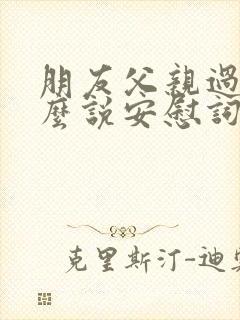 朋友父親過
麼說安慰詞
克里斯汀-迪